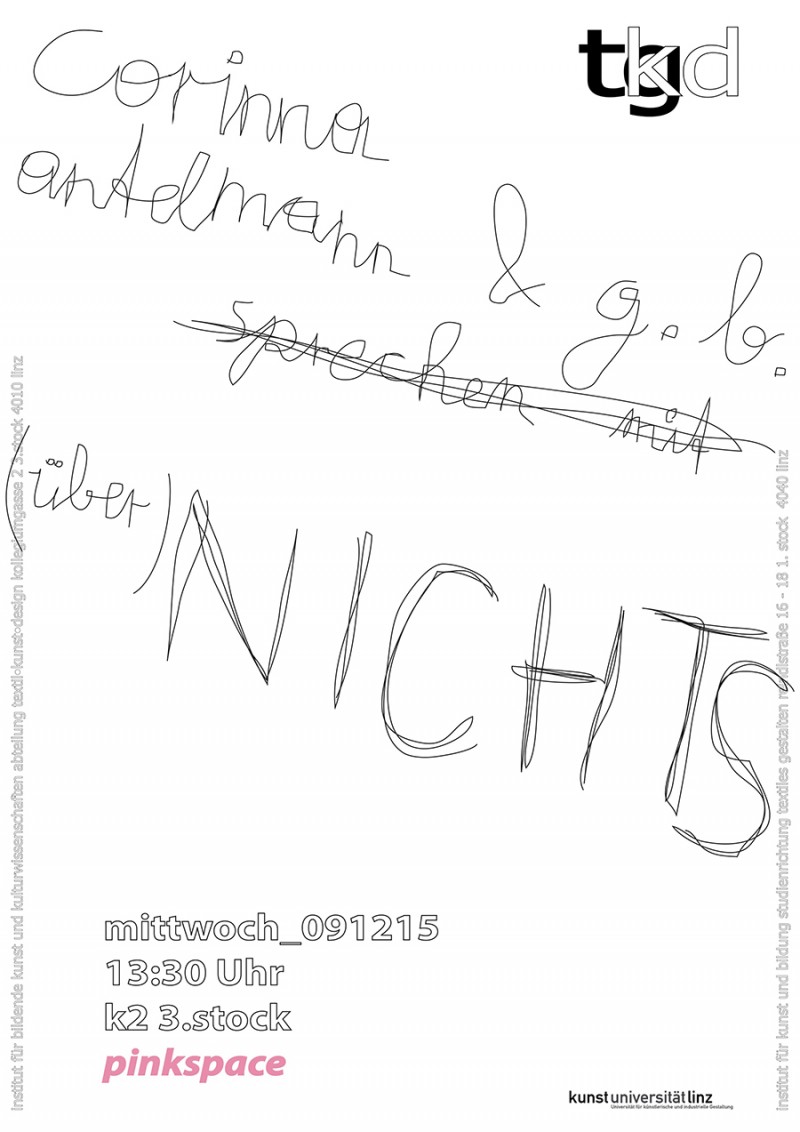 tgkd
Corinna
antelmann
& g. b.
sprechen mit
(über)
NICHTS
mittwoch_091215
13:30 Uhr
k2 3.stock
pinkspace
institut für bildende kunst und kulturwissenschaften abteilung textil·kunst·design kollegiumgasse 2 3.stock 4010 linz
institut für kunst und bildung studienrichtung textiles gestalten reindlstraße 16 - 18 1. stock 4040 linz
kunstuniversitätlinz
Universität für künstlerische und industrielle Gestaltung